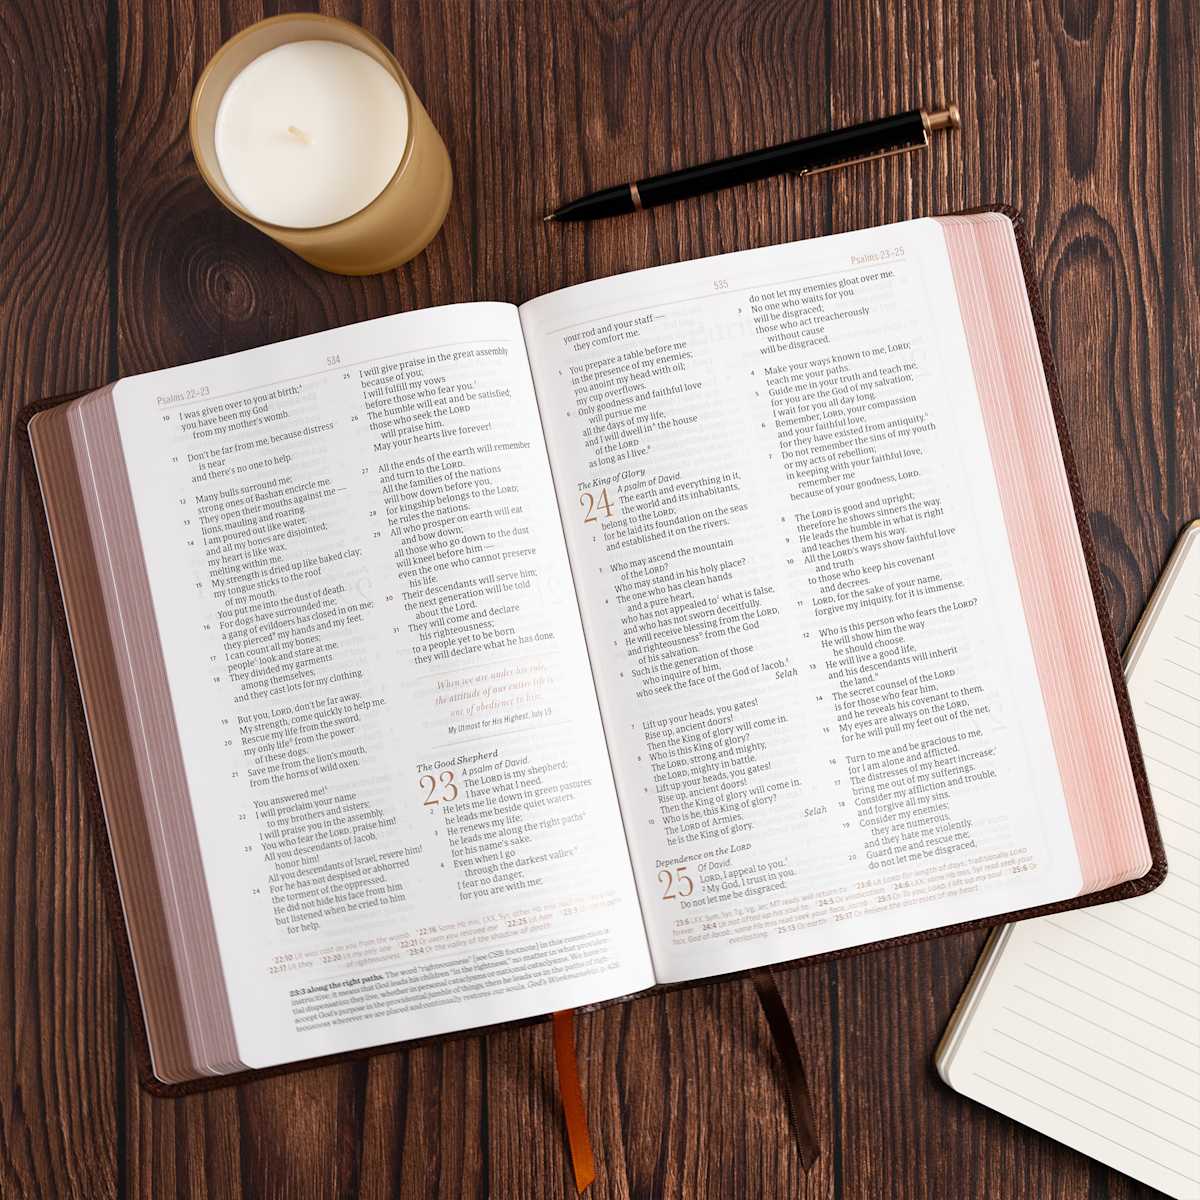 Psalms 22–23
534
10 I was given over to you at birth;
you have been my God
from my mother's womb.
11 Don't be far from me, because distress
is near
and there's no one to help.
12 Many bulls surround me;
strong ones of Bashan encircle me.
13 They open their mouths against me —
lions, mauling and roaring.
14 I am poured out like water,
and all my bones are disjointed;
my heart is like wax,
melting within me.
15 My strength is dried up like baked clay;
my tongue sticks to the roof
of my mouth.
You put me into the dust of death.
16 For dogs have surrounded me;
a gang of evildoers has closed in on me;
they pierced my hands and my feet.
17 I can count all my bones;
people look and stare at me.
18 They divided my garments
among themselves,
and they cast lots for my clothing.
19 But you, LORD, don't be far away.
My strength, come quickly to help me.
20 Rescue my life from the sword,
my only life from the power
of these dogs.
21 Save me from the lion's mouth,
from the horns of wild oxen.
You answered me!
22 I will proclaim your name
to my brothers and sisters;
I will praise you in the assembly.
23 You who fear the LORD, praise him!
All you descendants of Jacob,
honor him!
All you descendants of Israel, revere him!
24 For he has not despised or abhorred
the torment of the oppressed.
He did not hide his face from him
but listened when he cried to him
for help.
25 I will give praise in the great assembly
because of you;
I will fulfill my vows
before those who fear you.
26 The humble will eat and be satisfied;
those who seek the LORD
will praise him.
May your hearts live forever!
27 All the ends of the earth will remember
and turn to the LORD.
All the families of the nations
will bow down before you,
28 for kingship belongs to the LORD;
he rules the nations.
29 All who prosper on earth will eat
and bow down;
all those who go down to the dust
will kneel before him —
even the one who cannot preserve
his life.
30 Their descendants will serve him;
the next generation will be told
about the Lord.
31 They will come and declare
his righteousness;
to a people yet to be born
they will declare what he has done.
When we are under his rule,
the attitude of our entire life is
one of obedience to him.
My Utmost for His Highest, July 19
The Good Shepherd
23 A psalm of David.
The LORD is my shepherd;
I have what I need.
2 He lets me lie down in green pastures;
he leads me beside quiet waters.
3 He renews my life;
he leads me along the right paths
for his name's sake.
4 Even when I go
through the darkest valley,
I fear no danger,
for you are with me;
23:3 along the right paths. The word "righteousness" [see CSB footnote] in this connection is
535
Psalms 23–25
your rod and your staff —
they comfort me.
5 You prepare a table before me
in the presence of my enemies;
you anoint my head with oil;
my cup overflows.
6 Only goodness and faithful love
will pursue me
all the days of my life,
and I will dwell in the house
of the LORD
as long as I live.
The King of Glory
24 A psalm of David.
The earth and everything in it,
the world and its inhabitants,
belong to the LORD;
2 for he laid its foundation on the seas
and established it on the rivers.
3 Who may ascend the mountain
of the LORD?
Who may stand in his holy place?
4 The one who has clean hands
and a pure heart,
who has not appealed to what is false,
and who has not sworn deceitfully.
5 He will receive blessing from the LORD,
and righteousness from the God
of his salvation.
6 Such is the generation of those
who inquire of him,
who seek the face of the God of Jacob.
Selah
7 Lift up your heads, you gates!
Rise up, ancient doors!
Then the King of glory will come in.
8 Who is this King of glory?
The LORD, strong and mighty,
the LORD, mighty in battle.
9 Lift up your heads, you gates!
Rise up, ancient doors!
Then the King of glory will come in.
10 Who is he, this King of glory?
The LORD of Armies,
he is the King of glory.
Selah
Dependence on the LORD
25 Of David.
LORD, I appeal to you.
2 My God, I trust in you.
Do not let me be disgraced;
do not let my enemies gloat over me.
3 No one who waits for you
will be disgraced;
those who act treacherously
without cause
will be disgraced.
4 Make your ways known to me, LORD;
teach me your paths.
5 Guide me in your truth and teach me,
for you are the God of my salvation;
I wait for you all day long.
6 Remember, LORD, your compassion
and your faithful love,
for they have existed from antiquity.
7 Do not remember the sins of my youth
or my acts of rebellion;
in keeping with your faithful love,
remember me
because of your goodness, LORD.
8 The LORD is good and upright;
therefore he shows sinners the way.
9 He leads the humble in what is right
and teaches them his way.
10 All the LORD's ways show faithful love
and truth
to those who keep his covenant
and decrees.
11 LORD, for the sake of your name,
forgive my iniquity, for it is immense.
12 Who is this person who fears the LORD?
He will show him the way
he should choose.
13 He will live a good life,
and his descendants will inherit
the land.
14 The secret counsel of the LORD
is for those who fear him,
and he reveals his covenant to them.
15 My eyes are always on the LORD,
for he will pull my feet out of the net.
16 Turn to me and be gracious to me,
for I am alone and afflicted.
17 The distresses of my heart increase;
bring me out of my sufferings.
18 Consider my affliction and trouble,
and forgive all my sins.
19 Consider my enemies;
they are numerous,
and they hate me violently.
20 Guard me and rescue me;
do not let me be disgraced,